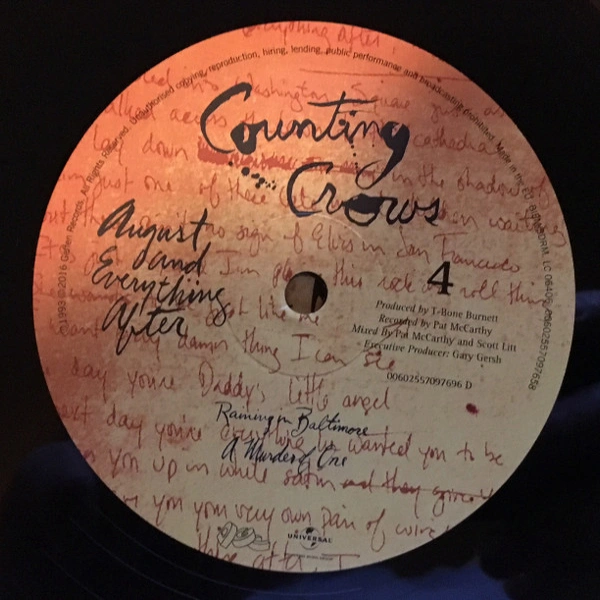 everything after,
Unauthorised copying, reproduction, hiring, lending, public performance and broadcasting prohibited. Made in the EU.
LC 06406
00602557097658
℗1993 ©2016 Geffen Records. All Rights Reserved.
Washington Square
Counting
Crows
walked across the
cathedral
lay down
in the shadow of
just one of these
when
August
and
Everything
After
no sign of Elvis in San Francisco
this rock n roll thing
4
like me
damn thing I can see
Produced by T-Bone Burnett
Recorded by Pat McCarthy
Mixed by Pat McCarthy and Scott Litt
Executive Producer: Gary Gersh
00602557097696 D
day you're Daddy's little angel
Raining in Baltimore
day you're everything he wanted you to be
A Murder of One
you up in white satin and they
you your very own pair of
UNIVERSAL